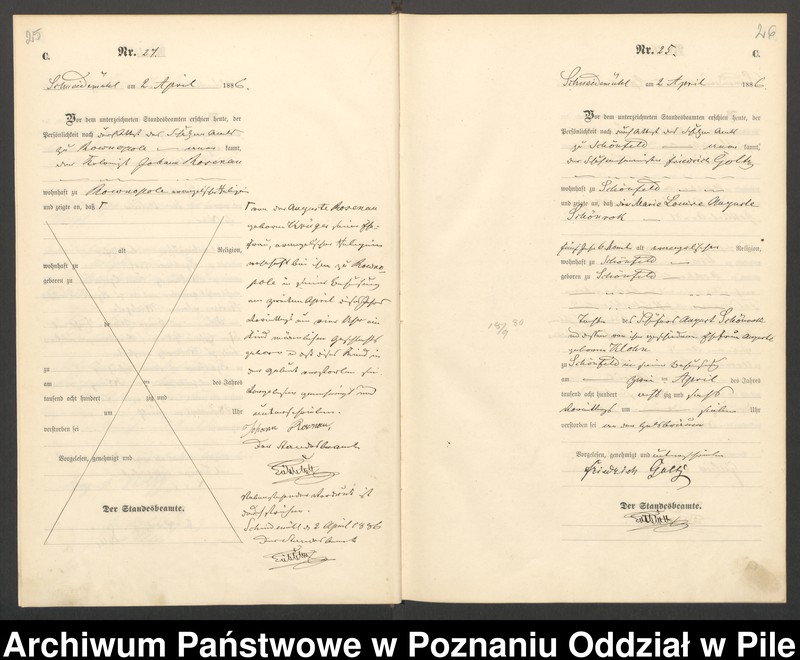 25
C.
Nr. 27.
Schneidemühl am 2 April 1886.
Vor dem unterzeichneten Standesbeamten erschien heute, der
Persönlichkeit nach durch Attest des Schulzen Amts
zu Kownopole kannt,
der Kolonist Johann Rosenau
wohnhaft zu Kownopole evangelischer Religion
und zeigte an, daß
von der Auguste Rosenau
geborenen Krüger seiner Ehe-
frau, evangelischer Religion
alt Religion,
wohnhaft bei ihm zu Kowno-
wohnhaft zu
pole in seiner Behausung
geboren zu
am zweiten April dieses Jahres
Vormittags um ein Uhr ein
zu
Kind männlichen Geschlechts
geboren und daß dieses Kind in
zu
der Geburt verstorben sei.
am ten des Jahres
Vorgelesen genehmigt und
tausend acht hundert zig und
unterschrieben.
um Uhr
Johann Rosenau,
verstorben sei
Der Standesbeamte
Vorgelesen, genehmigt und
Vorstehender Vordruck ist
durchstrichen.
Der Standesbeamte.
Schneidemühl d. 2 April 1886
Der Standesbeamte
26
C.
Nr. 25.
Schneidemühl am 2 April 1886.
Vor dem unterzeichneten Standesbeamten erschien heute, der
Persönlichkeit nach durch Attest des Schulzen Amts
zu Schönfeld kannt,
Friedrich Goltz
wohnhaft zu Schönfeld
und zeigte an, daß die Marie Louise Auguste
Schönrok
alt evangelischer Religion,
wohnhaft zu Schönfeld
geboren zu Schönfeld
Tochter des August Schönrok
und dessen geschiedenen Ehefrau Auguste
geborenen
zu Schönfeld in seiner Behausung
am zwei ten April des Jahres
tausend acht hundert acht zig und sechs
Vormittags um sieben Uhr
verstorben sei an der
Vorgelesen, genehmigt und unterschrieben
Friedrich Goltz
Der Standesbeamte.
Archiwum Państwowe w Poznaniu Oddział w Pile